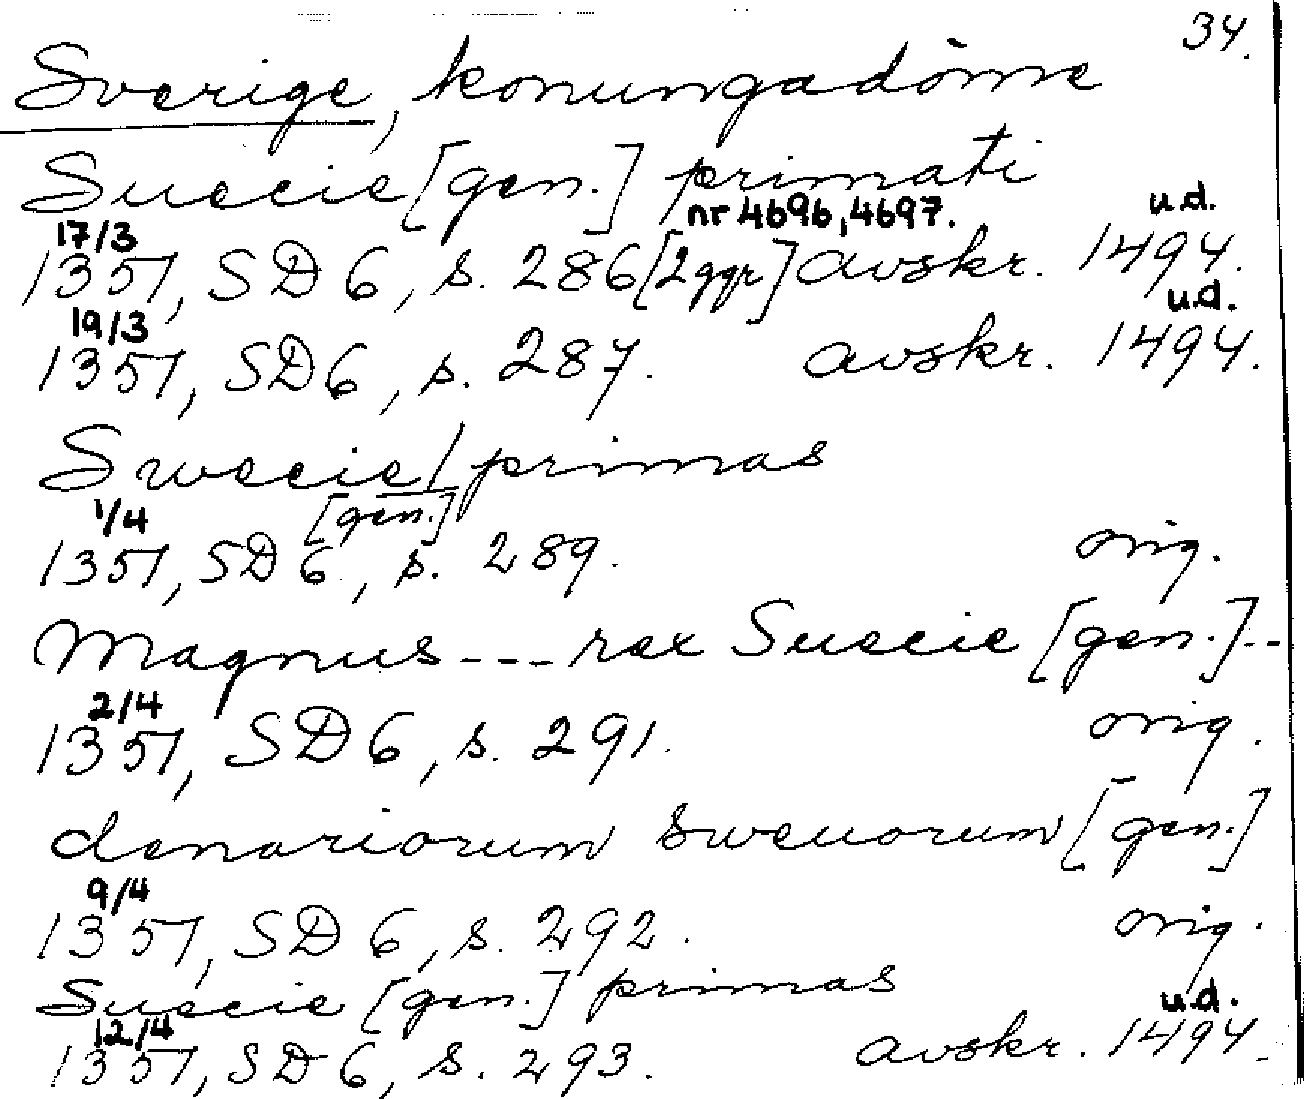 34.
Sverige, konungadöme
Suecie [gen.] primati
nr 4696, 4697. u.d.
17/3
1351, SD 6, s. 286 [2 ggr] avskr. 1494.
19/3 u.d.
1351, SD 6, s. 287. avskr. 1494.
Swecie/primas
1/4 [gen.]
1351, SD 6, s. 289. orig.
Magnus --- rex Suecie [gen.]--
2/4
1351, SD 6, s. 291. orig.
denariorum sweuorum [gen.]
9/4
1351, SD 6, s. 292. orig.
Suecie [gen.] primas
12/4 u.d.
1351, SD 6, s. 293. avskr. 1494.